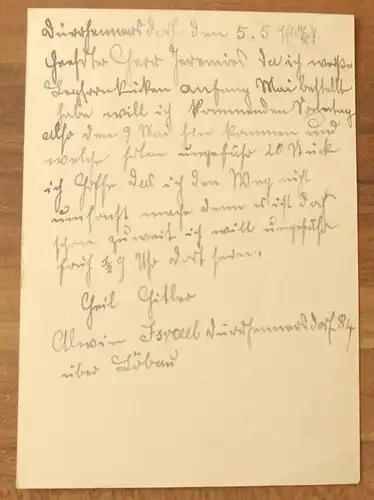 Dürrhennersdorf den 5.5.19
Geehrter Herr Jeremies da ich weiße
Leghornküken anfang Mai bestellt
habe will ich kommenden Sonntag
also den 9 Mai hin kommen und
welche holen ungefähr 20 Stück
ich hoffe das ich den Weg nicht
umsonst mache denn es ist doch
schon zuweit ich will ungefähr
früh ½9 Uhr dort sein.
Heil Hitler
Alwin Israel Dürrhennersdorf 84
über Löbau